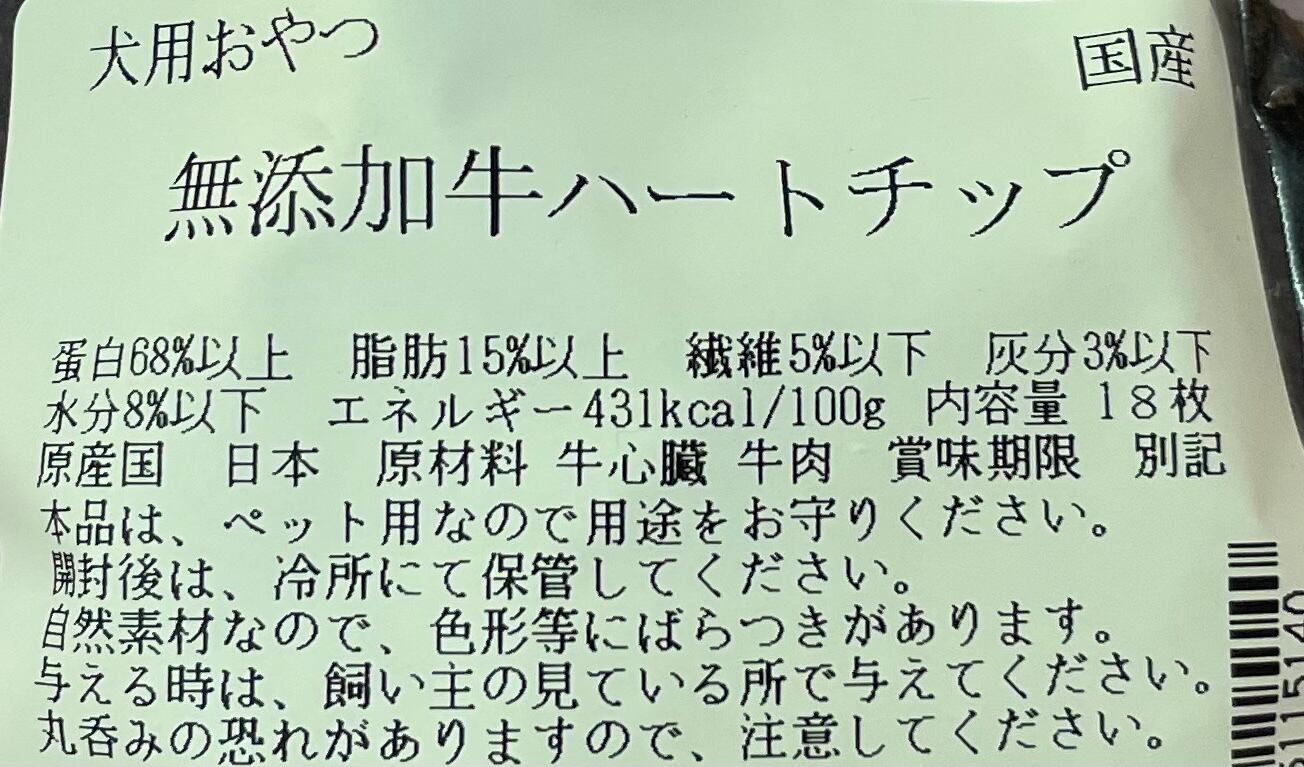 犬用おやつ 国産
無添加牛ハートチップ
蛋白68%以上 脂肪15%以上 繊維5%以下 灰分3%以下
水分8%以下 エネルギー431kcal/100g 内容量 18枚
原産国 日本 原材料 牛心臓 牛肉 賞味期限 別記
本品は、ペット用なので用途をお守りください。
開封後は、冷所にて保管してください。
自然素材なので、色形等にばらつきがあります。
与える時は、飼い主の見ている所で与えてください。
丸呑みの恐れがありますので、注意してください。